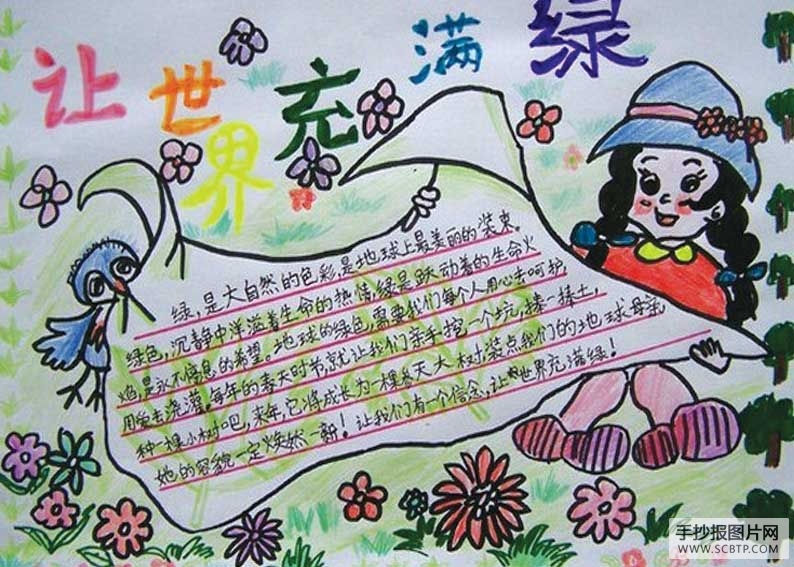 让世界充满绿
绿,是大自然的色彩,是地球上最美丽的装束。
绿色,沉静中洋溢着生命的热情,绿是跃动着的生命火
焰,是永不停息的希望。地球的绿色,需要我们每个人用心去呵护,
用爱去浇灌。每年的春天时节,就让我们亲手挖一个坑,捧一捧土,
种一棵小树吧,来年,它将成长为一棵参天大树,装点我们的地球母亲,
她的容貌一定焕然一新!让我们有一个信念,让世界充满绿!
手抄报图片网
www.SCBTP.COM